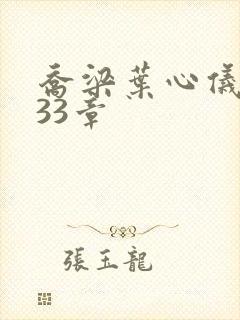 喬梁葉心儀
33章
張玉龍